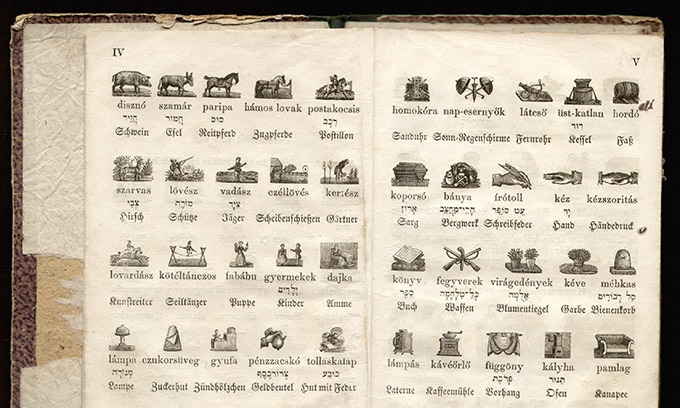 IV
disznó szamár paripa hámos lovak postakocsis
חֲזִיר חֲמוֹר סוּס רַכָּב
Schwein Esel Reitpferd Zugpferde Postillon
szarvas lövész vadász czéllövés kertész
צְבִי מוֹרֶה צַיָּד
Hirsch Schütze Jäger Scheibenschießen Gärtner
lovardász kötéltánczos fabábu gyermekek dajka
יְלָדִים
Kunstreiter Seiltänzer Puppe Kinder Amme
lámpa czukorsüveg gyufa pénzzacskó tollaskalap
מְנוֹרָה צְרוֹר־כֶּסֶף כּוֹבַע
Lampe Zuckerhut Zündhölzchen Geldbeutel Hut mit Feder
V
homokóra nap-esernyők látcső üst-katlan hordó
דּוּד
Sanduhr Sonn-Regenschirme Fernrohr Kessel Faß
koporsó bánya írótoll kéz kézszoritás
אָרוֹן עֵט סוֹפֵר יָד
Sarg Bergwerk Schreibfeder Hand Händedruck
könyv fegyverek virágedények kéve méhkas
סֵפֶר כְּלֵי־מִלְחָמָה אֲלֻמָּה סַל דְּבוֹרִים
Buch Waffen Blumentiegel Garbe Bienenkorb
lámpás kávéőrlő függöny kályha pamlag
פָּרֹכֶת תַּנּוּר
Laterne Kaffeemühle Vorhang Ofen Kanapee